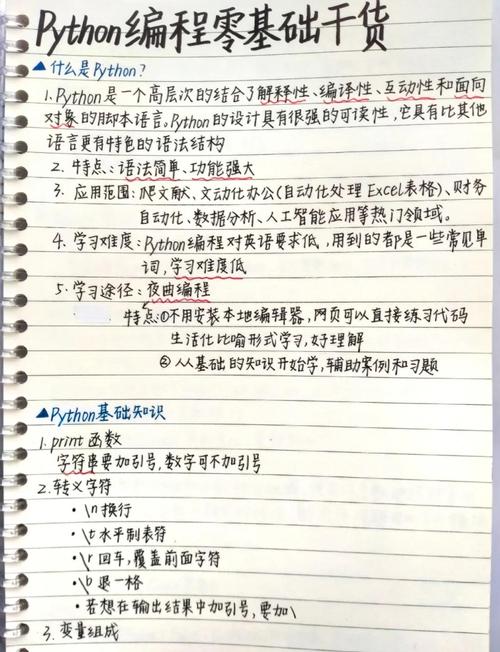 Python编程零基础干货
▲什么是Python?
1.Python是一个高层次的结合了解释性、编译性、互动性和面向
对象的脚本语言。Python的设计具有很强的可读性,它具有比其他
语言更有特色的语法结构
2. 特点:语法简单、功能强大
3. 应用范围:爬文献、文动化办公(自动化处理Excel表格)、财务
自动化、数据分析、人工智能应用等热门领域。
4. 学习难度:Python编程对英语要求低,用到的都是一些常见单
词,学习难度低
5. 学习途径:夜曲编程
特点:①不用安装本地编辑器,网页可以直接练习代码
生活化比喻形式学习,好理解
②从基础的知识开始学,辅助案例和习题
▲Python基础知识
1.print函数
字符串要加引号,数字可不加引号
2.转义字符
•\n换行
•\t水平制表符
•\r回车,覆盖前面字符
•\b退一格
•若想在输出结果中加引号,要加\
3.变量组成